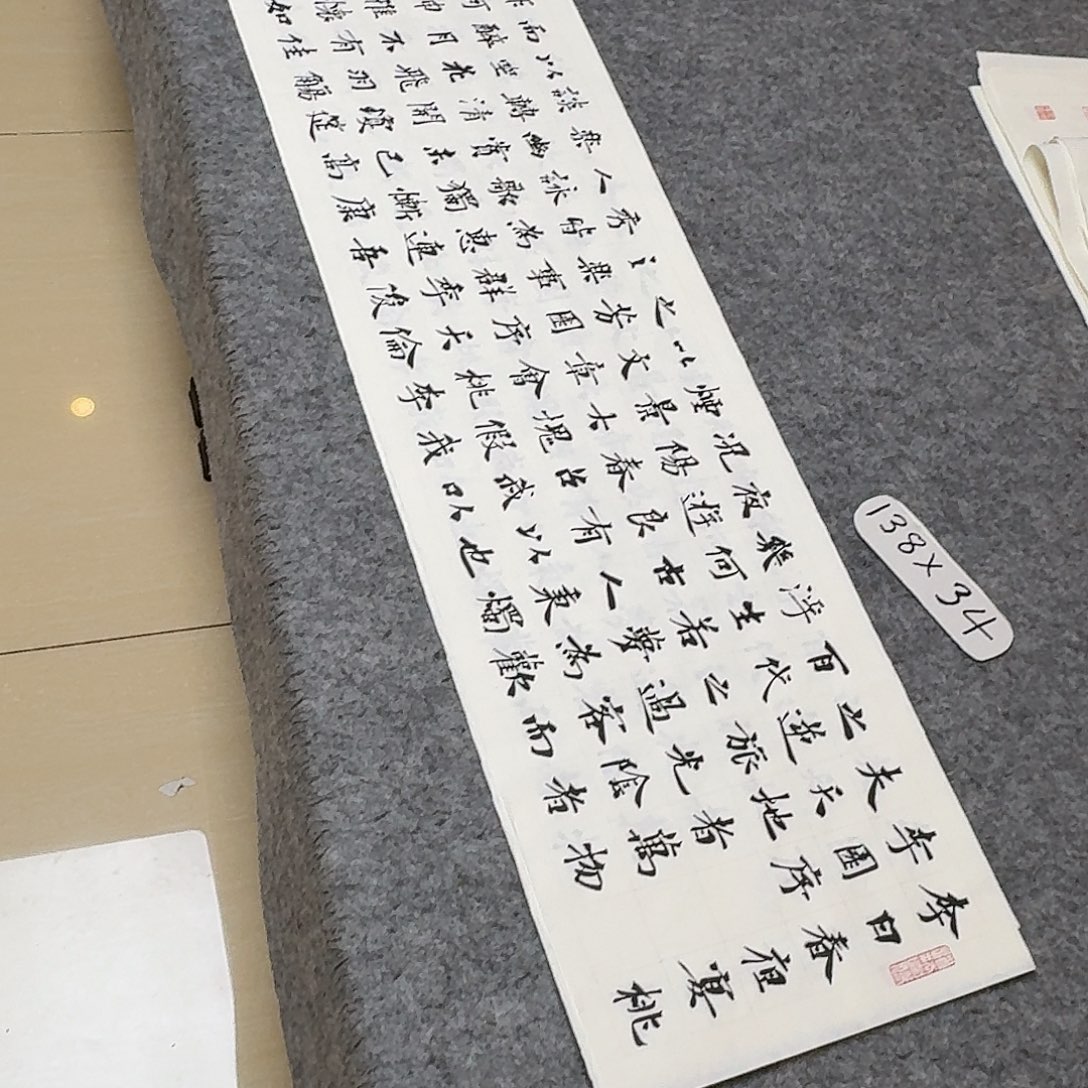 李白春夜宴桃
李園序
夫天地者萬物
之逆旅光陰者
百代之過客而
浮生若夢為歡
幾何古人秉燭
夜遊良有以也
況陽春召我以
煙景大塊假我
以文章會桃李
之芳園序天倫
之樂事群季俊
秀皆為惠連吾
人詠歌獨慚康
樂幽賞未已高
談轉清開瓊筵
以坐花飛羽觴
而醉月不有佳
何伸雅懷如
138×34